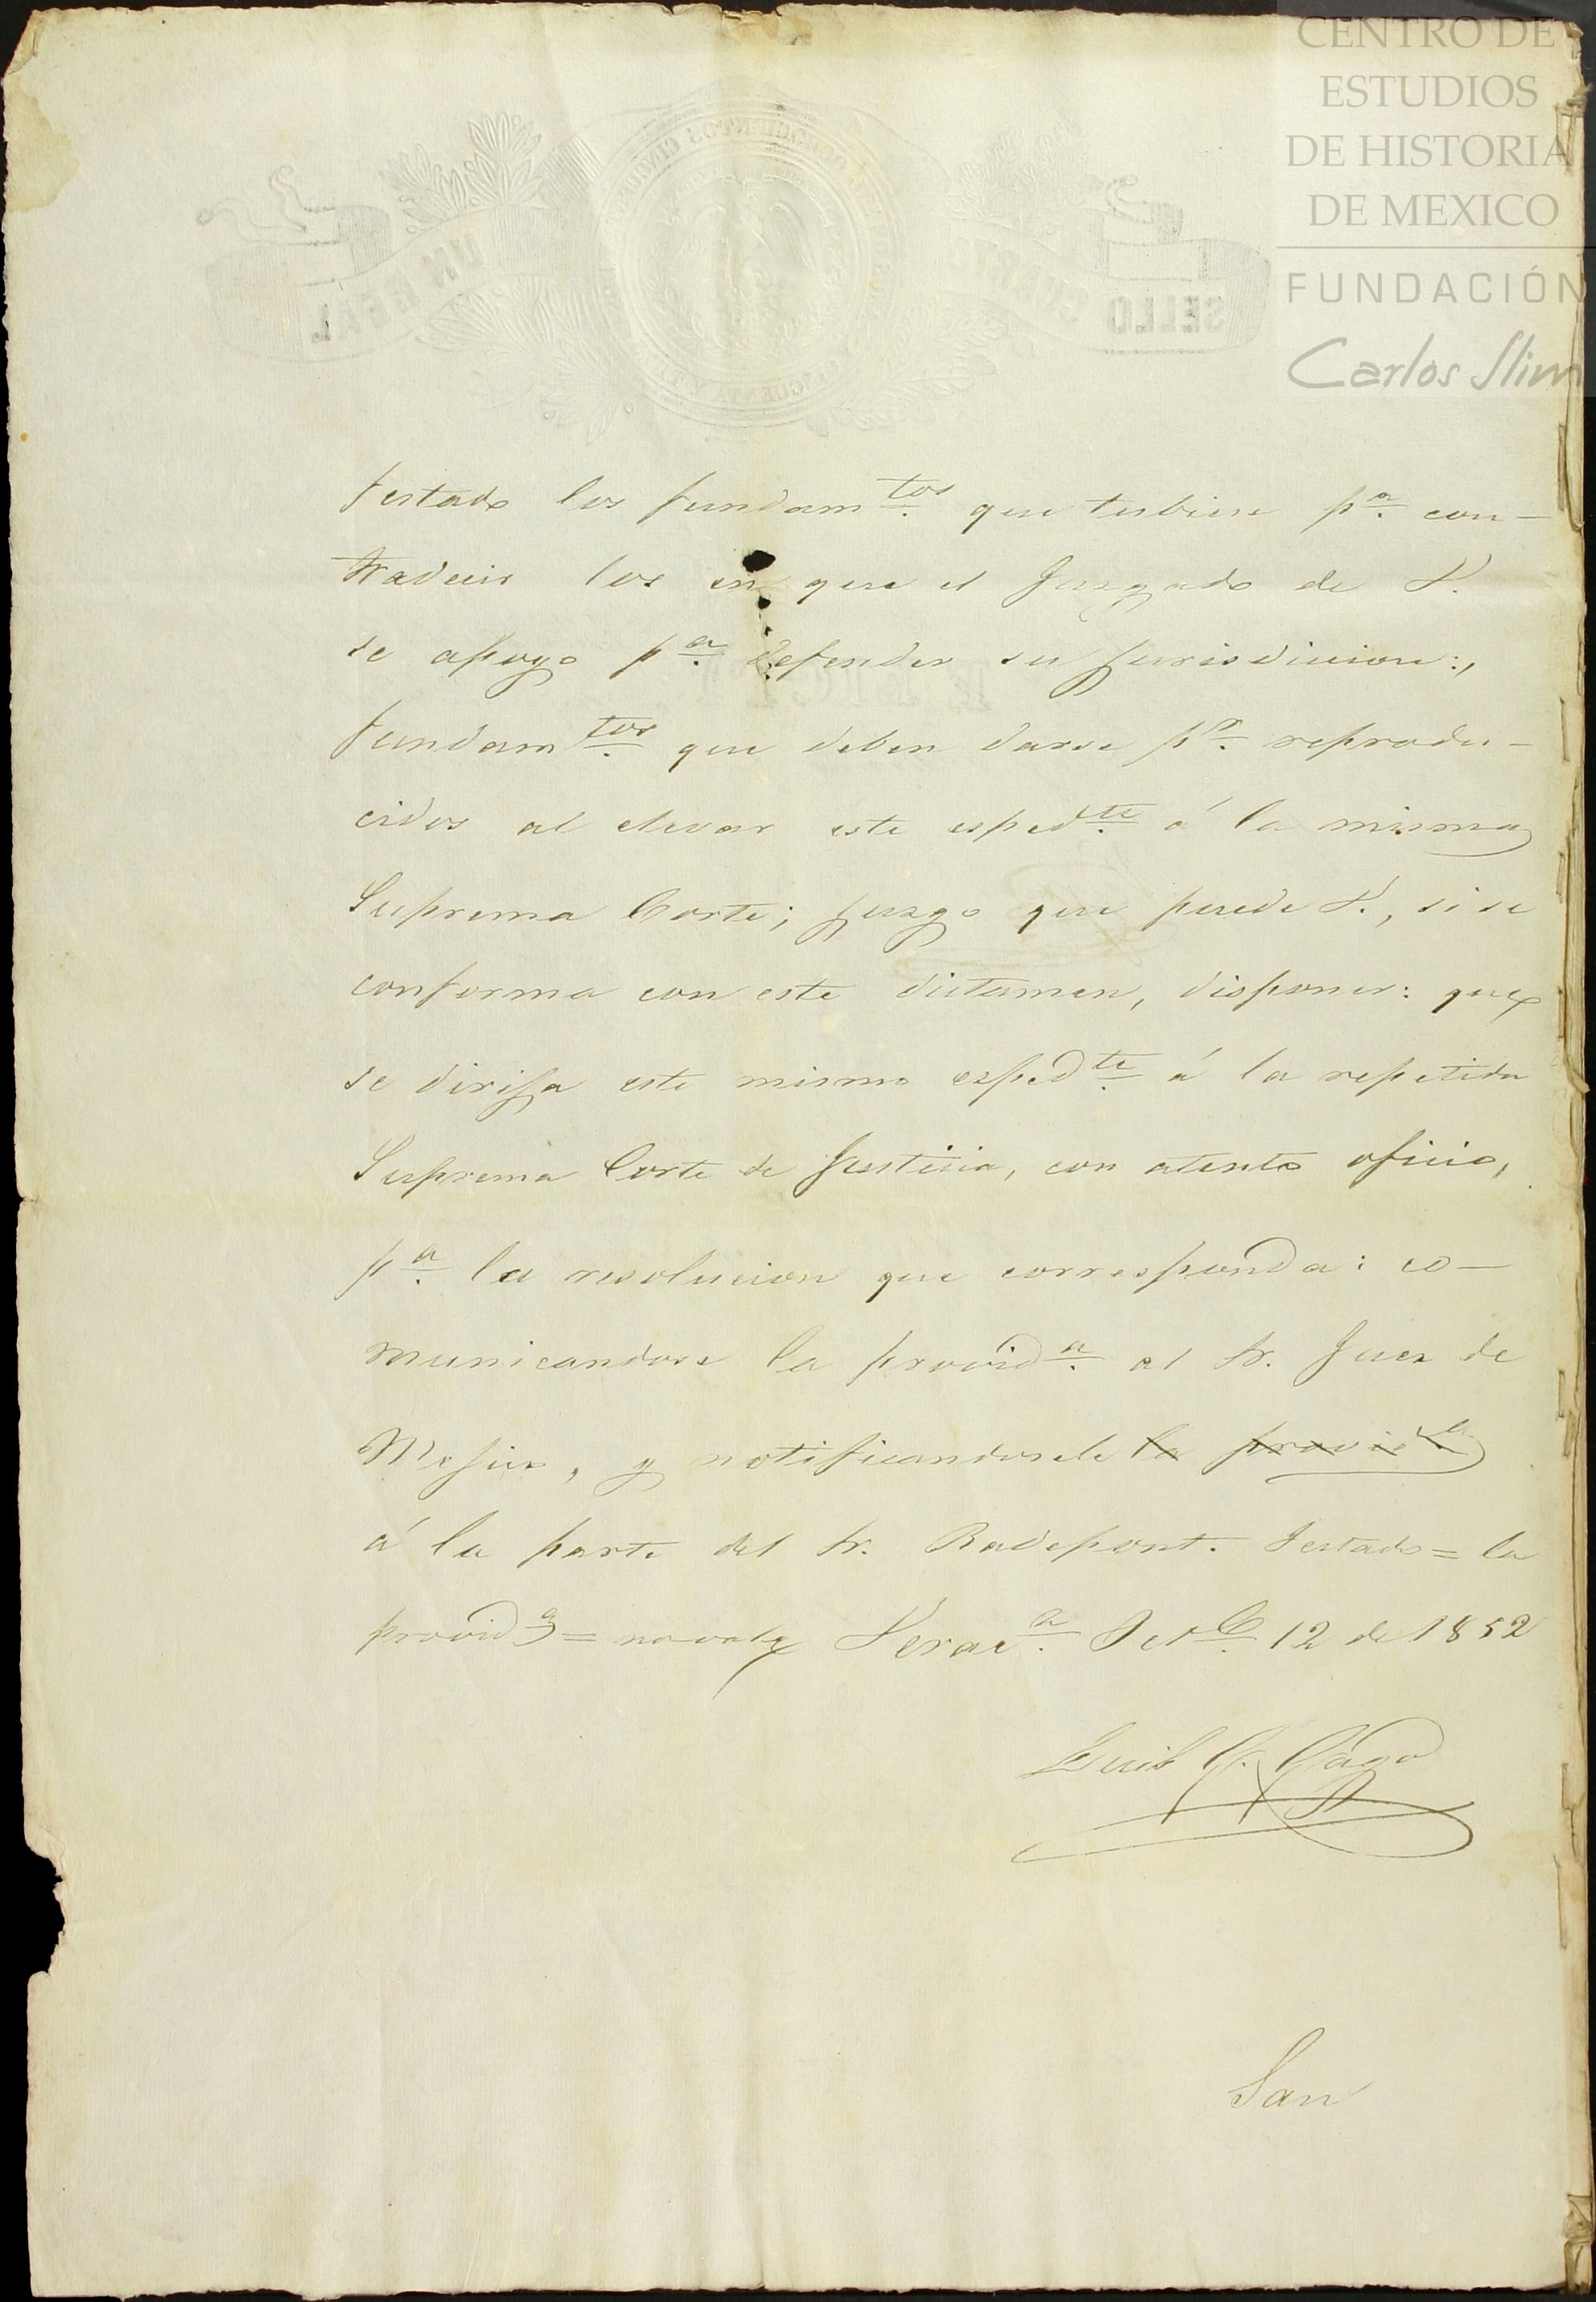 CENTRO DE
ESTUDIOS
DE HISTORIA
DE MEXICO
FUNDACIÓN
Carlos Slim
SELLO CUARTO UN REAL
festado los fundam.tos que tubiese p.a con-
tradecir los en que el Juzgado de V.
se apoyo p.a defender su jurisdiccion:,
fundam.tos que deben darse p.r reprodu-
cidos al elevar este esped.te á la misma
Suprema Corte; juzgo que puede V., si se
conforma con este dictamen, disponer: que
se dirija este mismo esped.te á la repetida
Suprema Corte de Justicia, con atento oficio,
p.a la resolucion que corresponda: co-
municandose la provid.a al Sr. Juez de
Mejico, y notificandosele la provid.a
á la parte del Sr. Radepont. Testado = la
provid.a = no vale Verac.z Oct.e 12 de 1852
Luis G. Gago
San